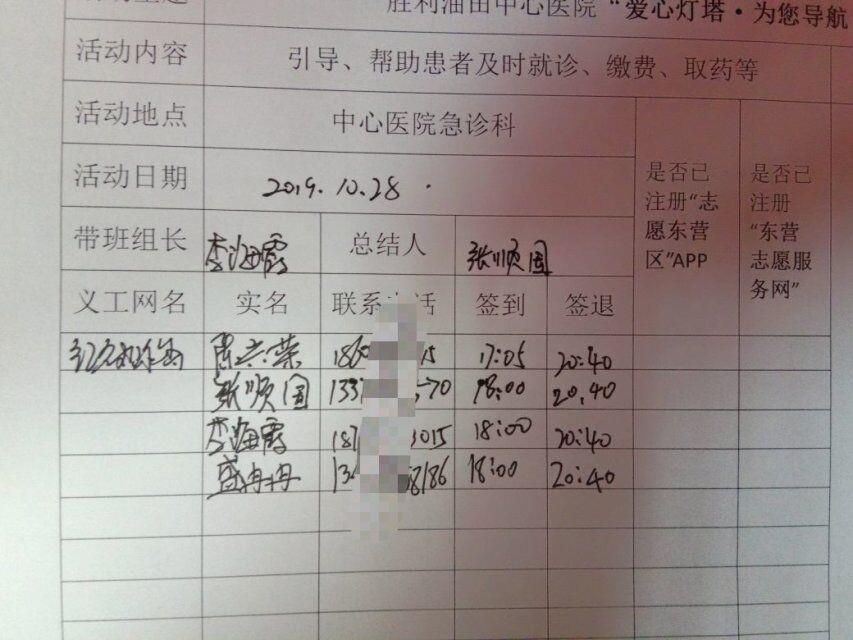 胜利油田中心医院“爱心灯塔·为您导航
活动内容 引导、帮助患者及时就诊、缴费、取药等
活动地点 中心医院急诊科
活动日期 2019.10.28.
是否已注册“志愿东营区”APP
是否已注册“东营志愿服务网”
带班组长 李海霞 总结人 张顺国
义工网名 实名 联系电话 签到 签退
186 15 17:05 20:40
张顺国 133 570 18:00 20.40
李海霞 187 3015 18:00 20:40
盛冉冉 13 8186 18:00 20:40